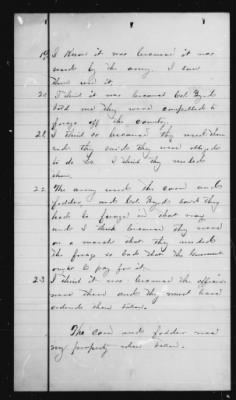 19. I know it was because it was
used by the army. I saw
them use it.
20. I think it was because Col. Byrd
told me they were compelled to
forage off the country.
21. I think so because they used them
and they said they were obliged
to do so. I think they needed
them.
22. The army used the corn and
fodder, and Col. Byrd said they
had to forage in that way
and I think because they were
on a march that they needed
the forage so bad that the Government
ought to pay for it.
23. I think it was, because the officers
were there and they must have
ordered them taken.
The corn and fodder was
my property when taken.